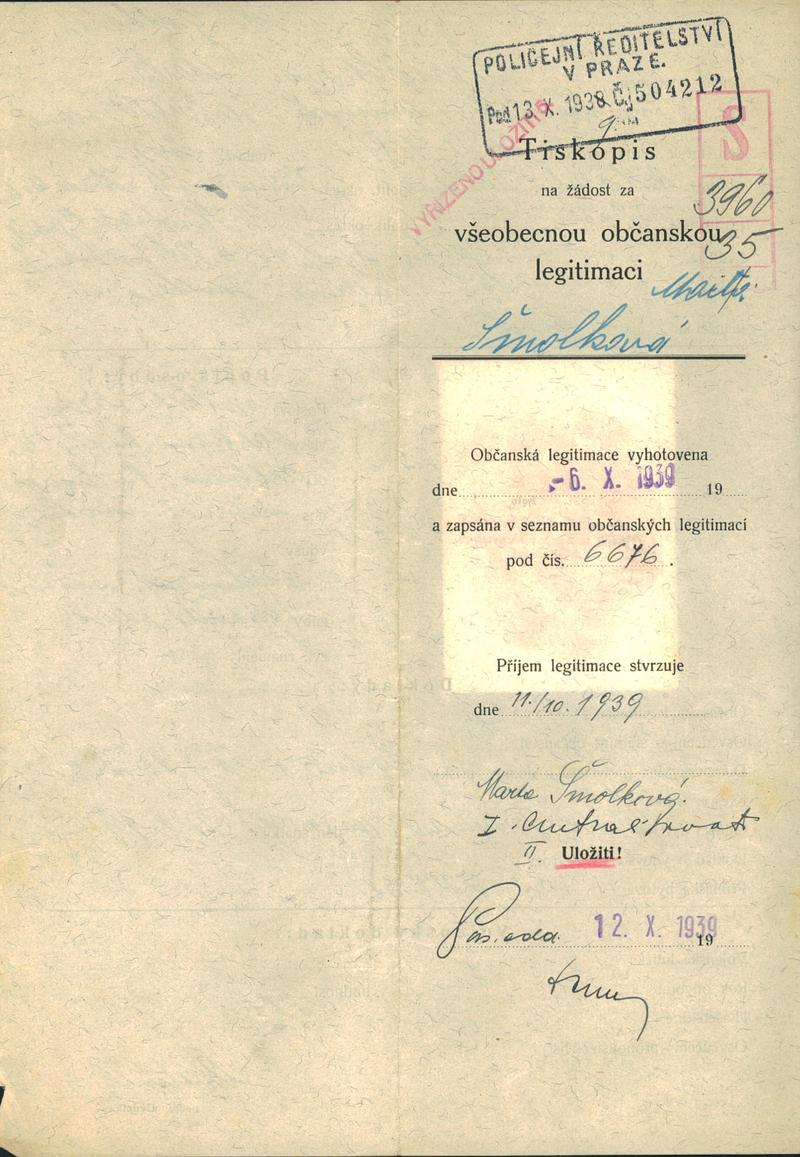 POLICEJNÍ ŘEDITELSTVÍ
V PRAZE.
Pod 13. X. 1938 Čj 504212
VYŘÍZENO ULOŽITI
S
Tiskopis
na žádost za
3960
všeobecnou občanskou
35
legitimaci
Smolková
Občanská legitimace vyhotovena
dne -6. X. 1939 19
a zapsána v seznamu občanských legitimací
pod čís. 6676.
Příjem legitimace stvrzuje
dne 11./10. 1939
Marta Šmolková.
I.
II. Uložiti!
12. X. 1939
19